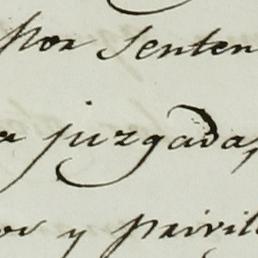 Por Senten
a juzgada,
or y privil